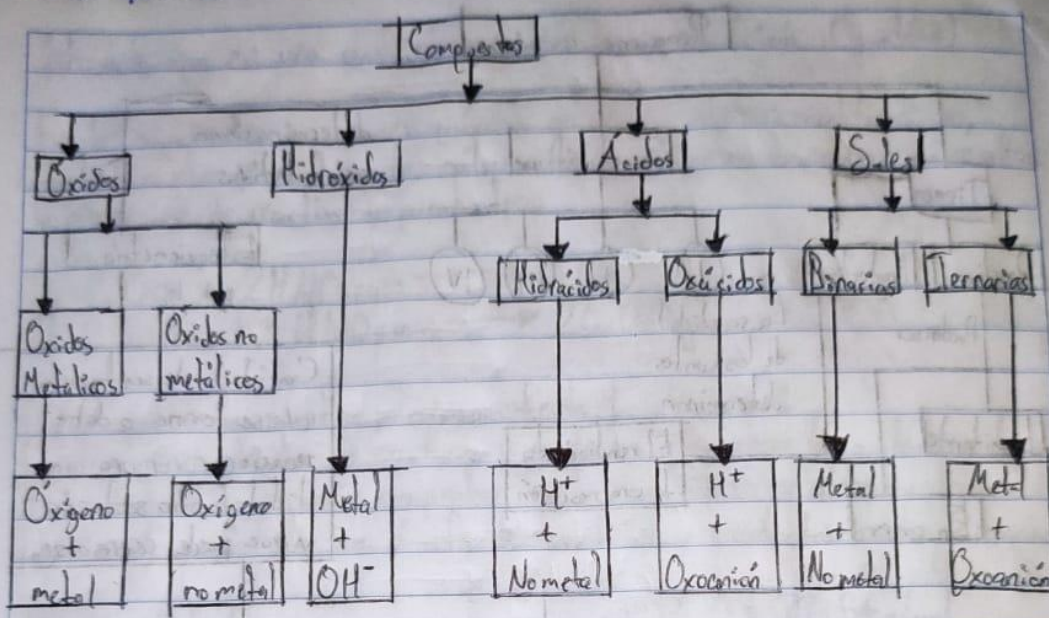 Compuestos
Óxidos
Hidróxidos
Ácidos
Sales
Hidrácidos
Oxácidos
Binarias
Ternarias
Óxidos
Metálicos
Óxidos no
metálicos
Oxígeno
+
metal
Oxígeno
+
no metal
Metal
+
OH⁻
H⁺
+
No metal
H⁺
+
Oxoanión
Metal
+
No metal
Metal
+
Oxoanión